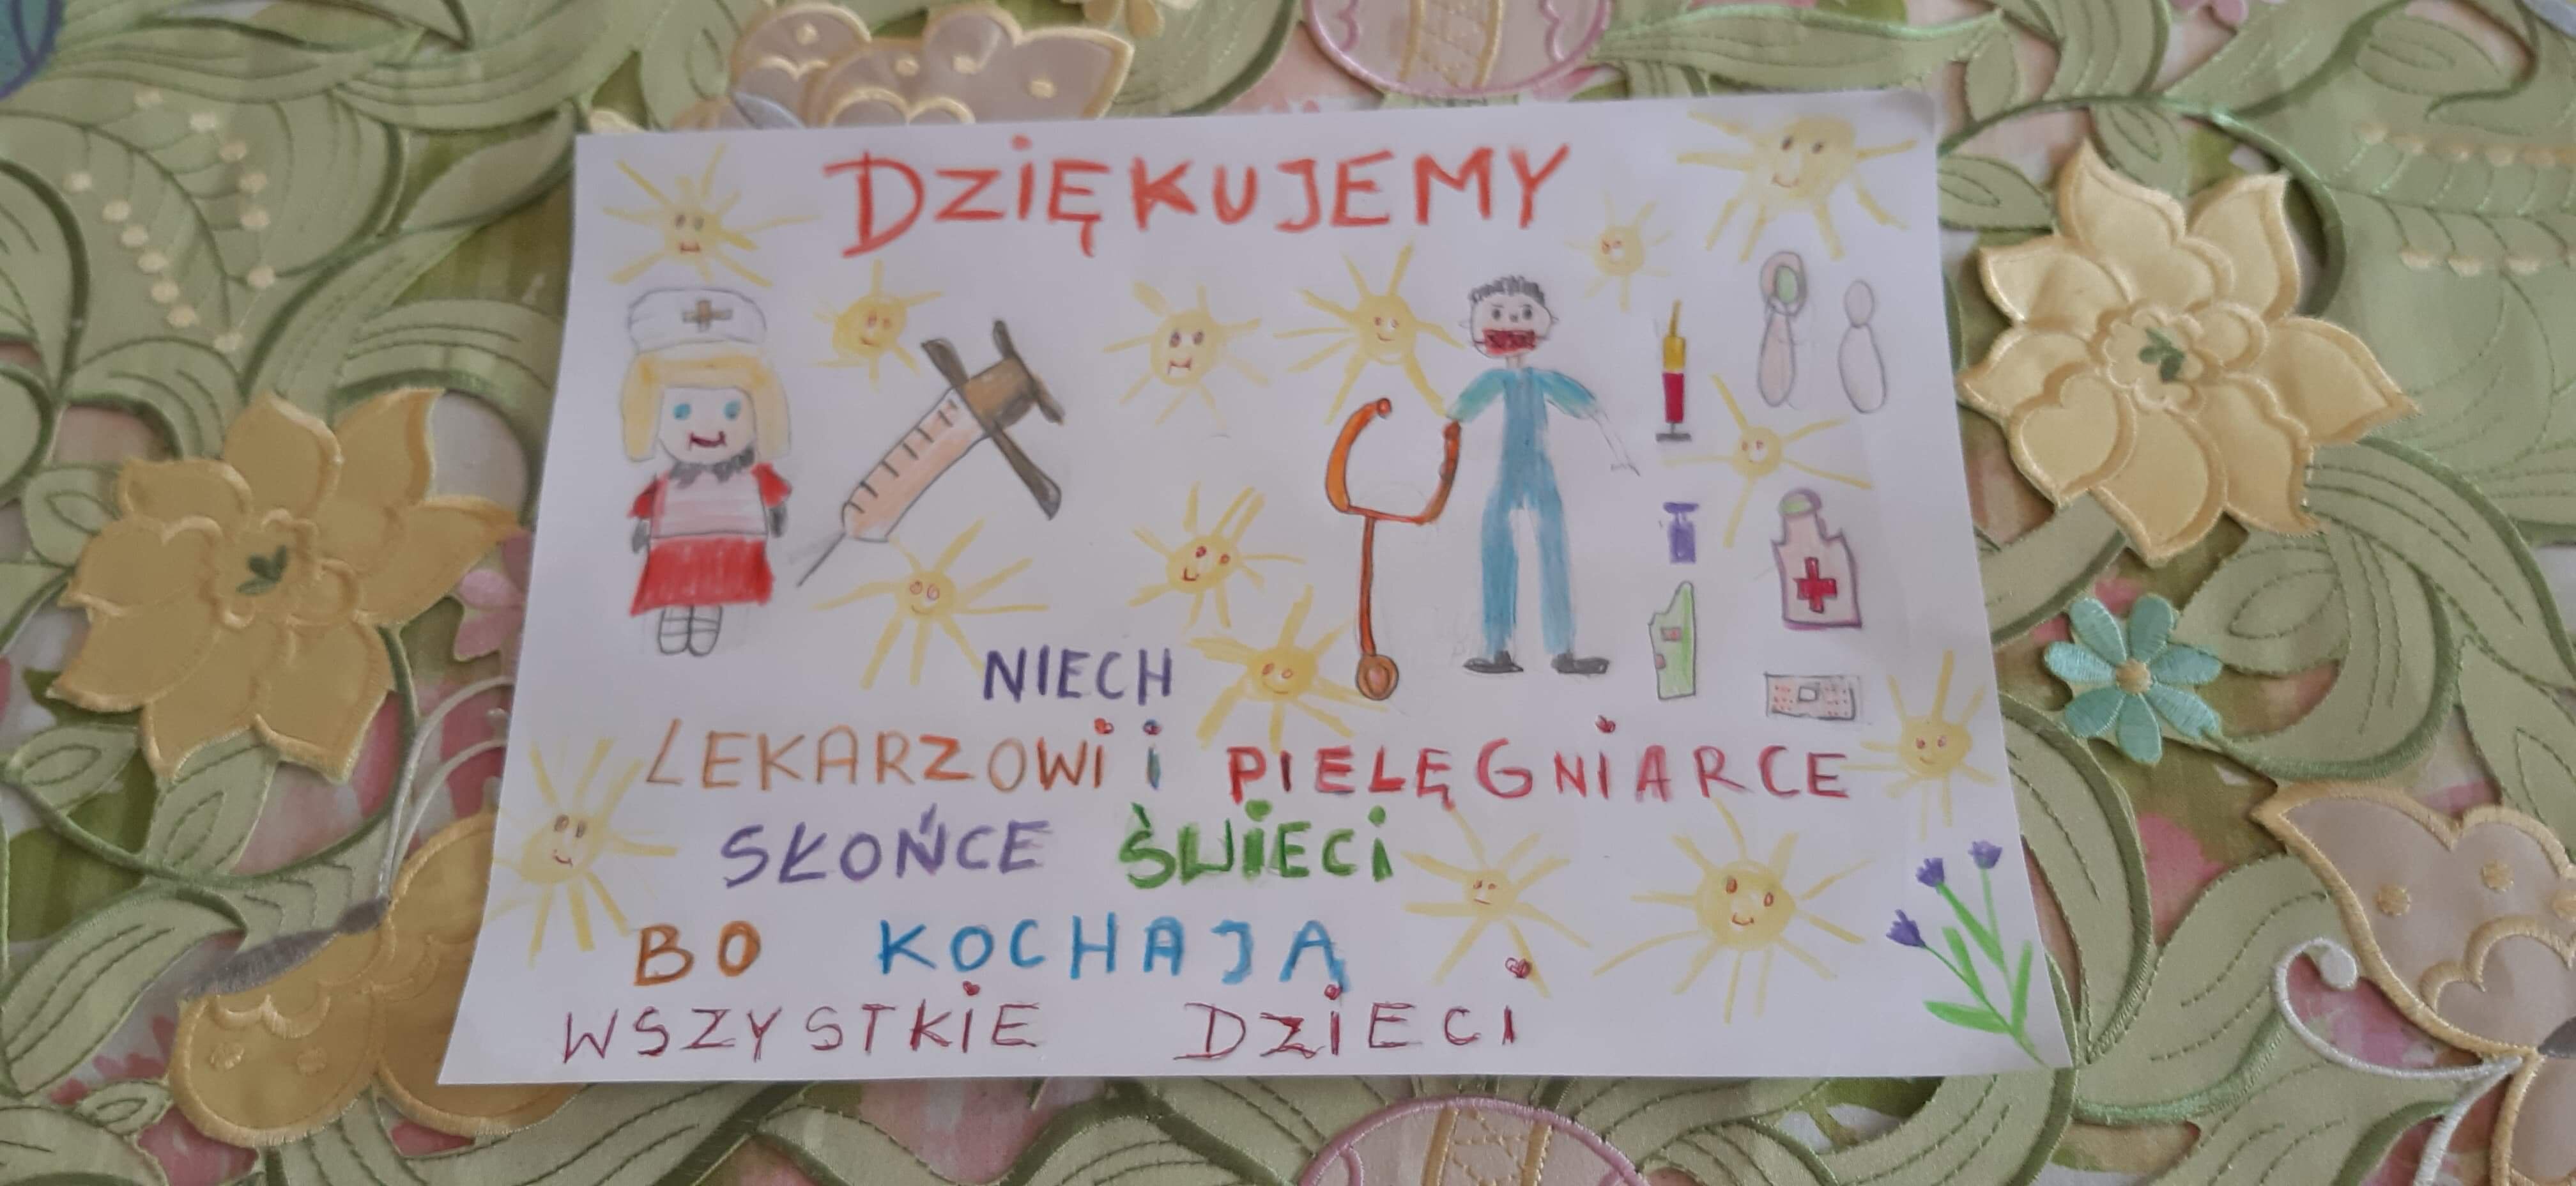 DZiĘKUJEMY
NIECH
LEKARZOWi i PIELĘGNiARCE
SŁOŃCE ŚWiECi
BO KOCHAJĄ
WSZYSTKiE DZiECi